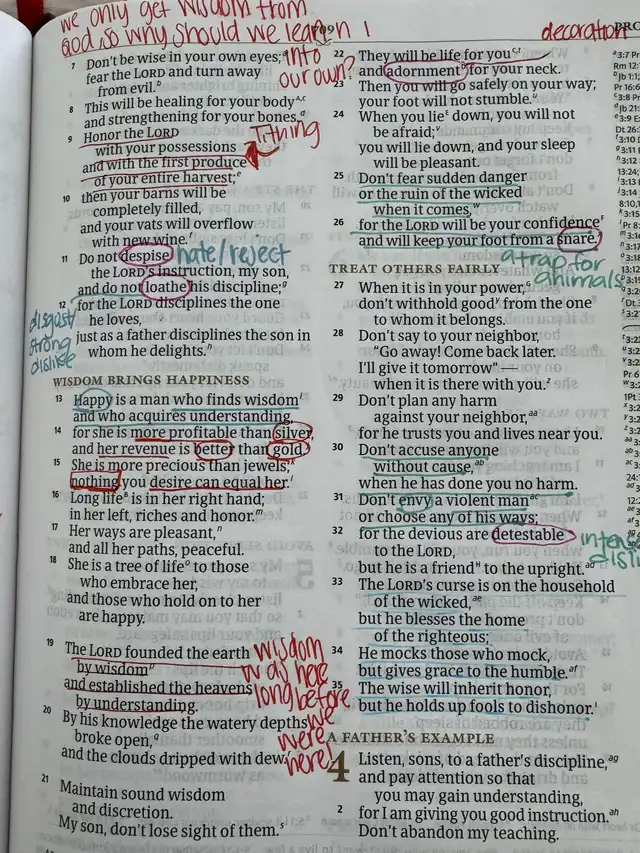 we only get wisdom from
God, so why should we lean
into
our own?
709
decoration
PRO
7 Don't be wise in your own eyes;
fear the LORD and turn away
from evil.b
8 This will be healing for your bodyA,c
and strengthening for your bones.d
9 Honor the LORD
with your possessions
and with the first produce
of your entire harvest;e
Tithing
10 then your barns will be
completely filled,
and your vats will overflow
with new wine.f
11 Do not despise
hate/reject
the LORD's instruction, my son,
and do not loathe his discipline;g
12 for the LORD disciplines the one
he loves,
just as a father disciplines the son in
whom he delights.h
disgust/
strong
dislike
WISDOM BRINGS HAPPINESS
13 Happy is a man who finds wisdomi
and who acquires understanding,
14 for she is more profitable than silver,
and her revenue is better than gold.
15 She is more precious than jewels;k
nothing you desire can equal her.l
16 Long lifeB is in her right hand;
in her left, riches and honor.m
17 Her ways are pleasant,n
and all her paths, peaceful.
18 She is a tree of lifeo to those
who embrace her,
and those who hold on to her
are happy.
19 The LORD founded the earth
by wisdomp
and established the heavens
by understanding.
wisdom
was here
long before
we
were
here!
20 By his knowledge the watery depths
broke open,q
and the clouds dripped with dew.r
21 Maintain sound wisdom
and discretion.
My son, don't lose sight of them.s
22 They will be life for youC,t
and adornmentD for your neck.
23 Then you will go safely on your way;
your foot will not stumble.u
24 When you lieE down, you will not
be afraid;v
you will lie down, and your sleep
will be pleasant.
25 Don't fear sudden danger
or the ruin of the wicked
when it comes,w
26 for the LORD will be your confidenceF
and will keep your foot from a snare.x
a trap for
animals
TREAT OTHERS FAIRLY
27 When it is in your power,G
don't withhold goody from the one
to whom it belongs.
28 Don't say to your neighbor,
"Go away! Come back later.
I'll give it tomorrow" —
when it is there with you.z
29 Don't plan any harm
against your neighbor,aa
for he trusts you and lives near you.
30 Don't accuse anyone
without cause,ab
when he has done you no harm.
31 Don't envy a violent manac
or choose any of his ways;
32 for the devious are detestable
to the LORD,
but he is a friendH to the upright.ad
33 The LORD's curse is on the household
of the wicked,ae
but he blesses the home
of the righteous;
34 He mocks those who mock,
but gives grace to the humble.af
35 The wise will inherit honor,
but he holds up fools to dishonor.I
A FATHER'S EXAMPLE
4 Listen, sons, to a father's discipline,ag
and pay attention so that
you may gain understanding,
2 for I am giving you good instruction.ah
Don't abandon my teaching.